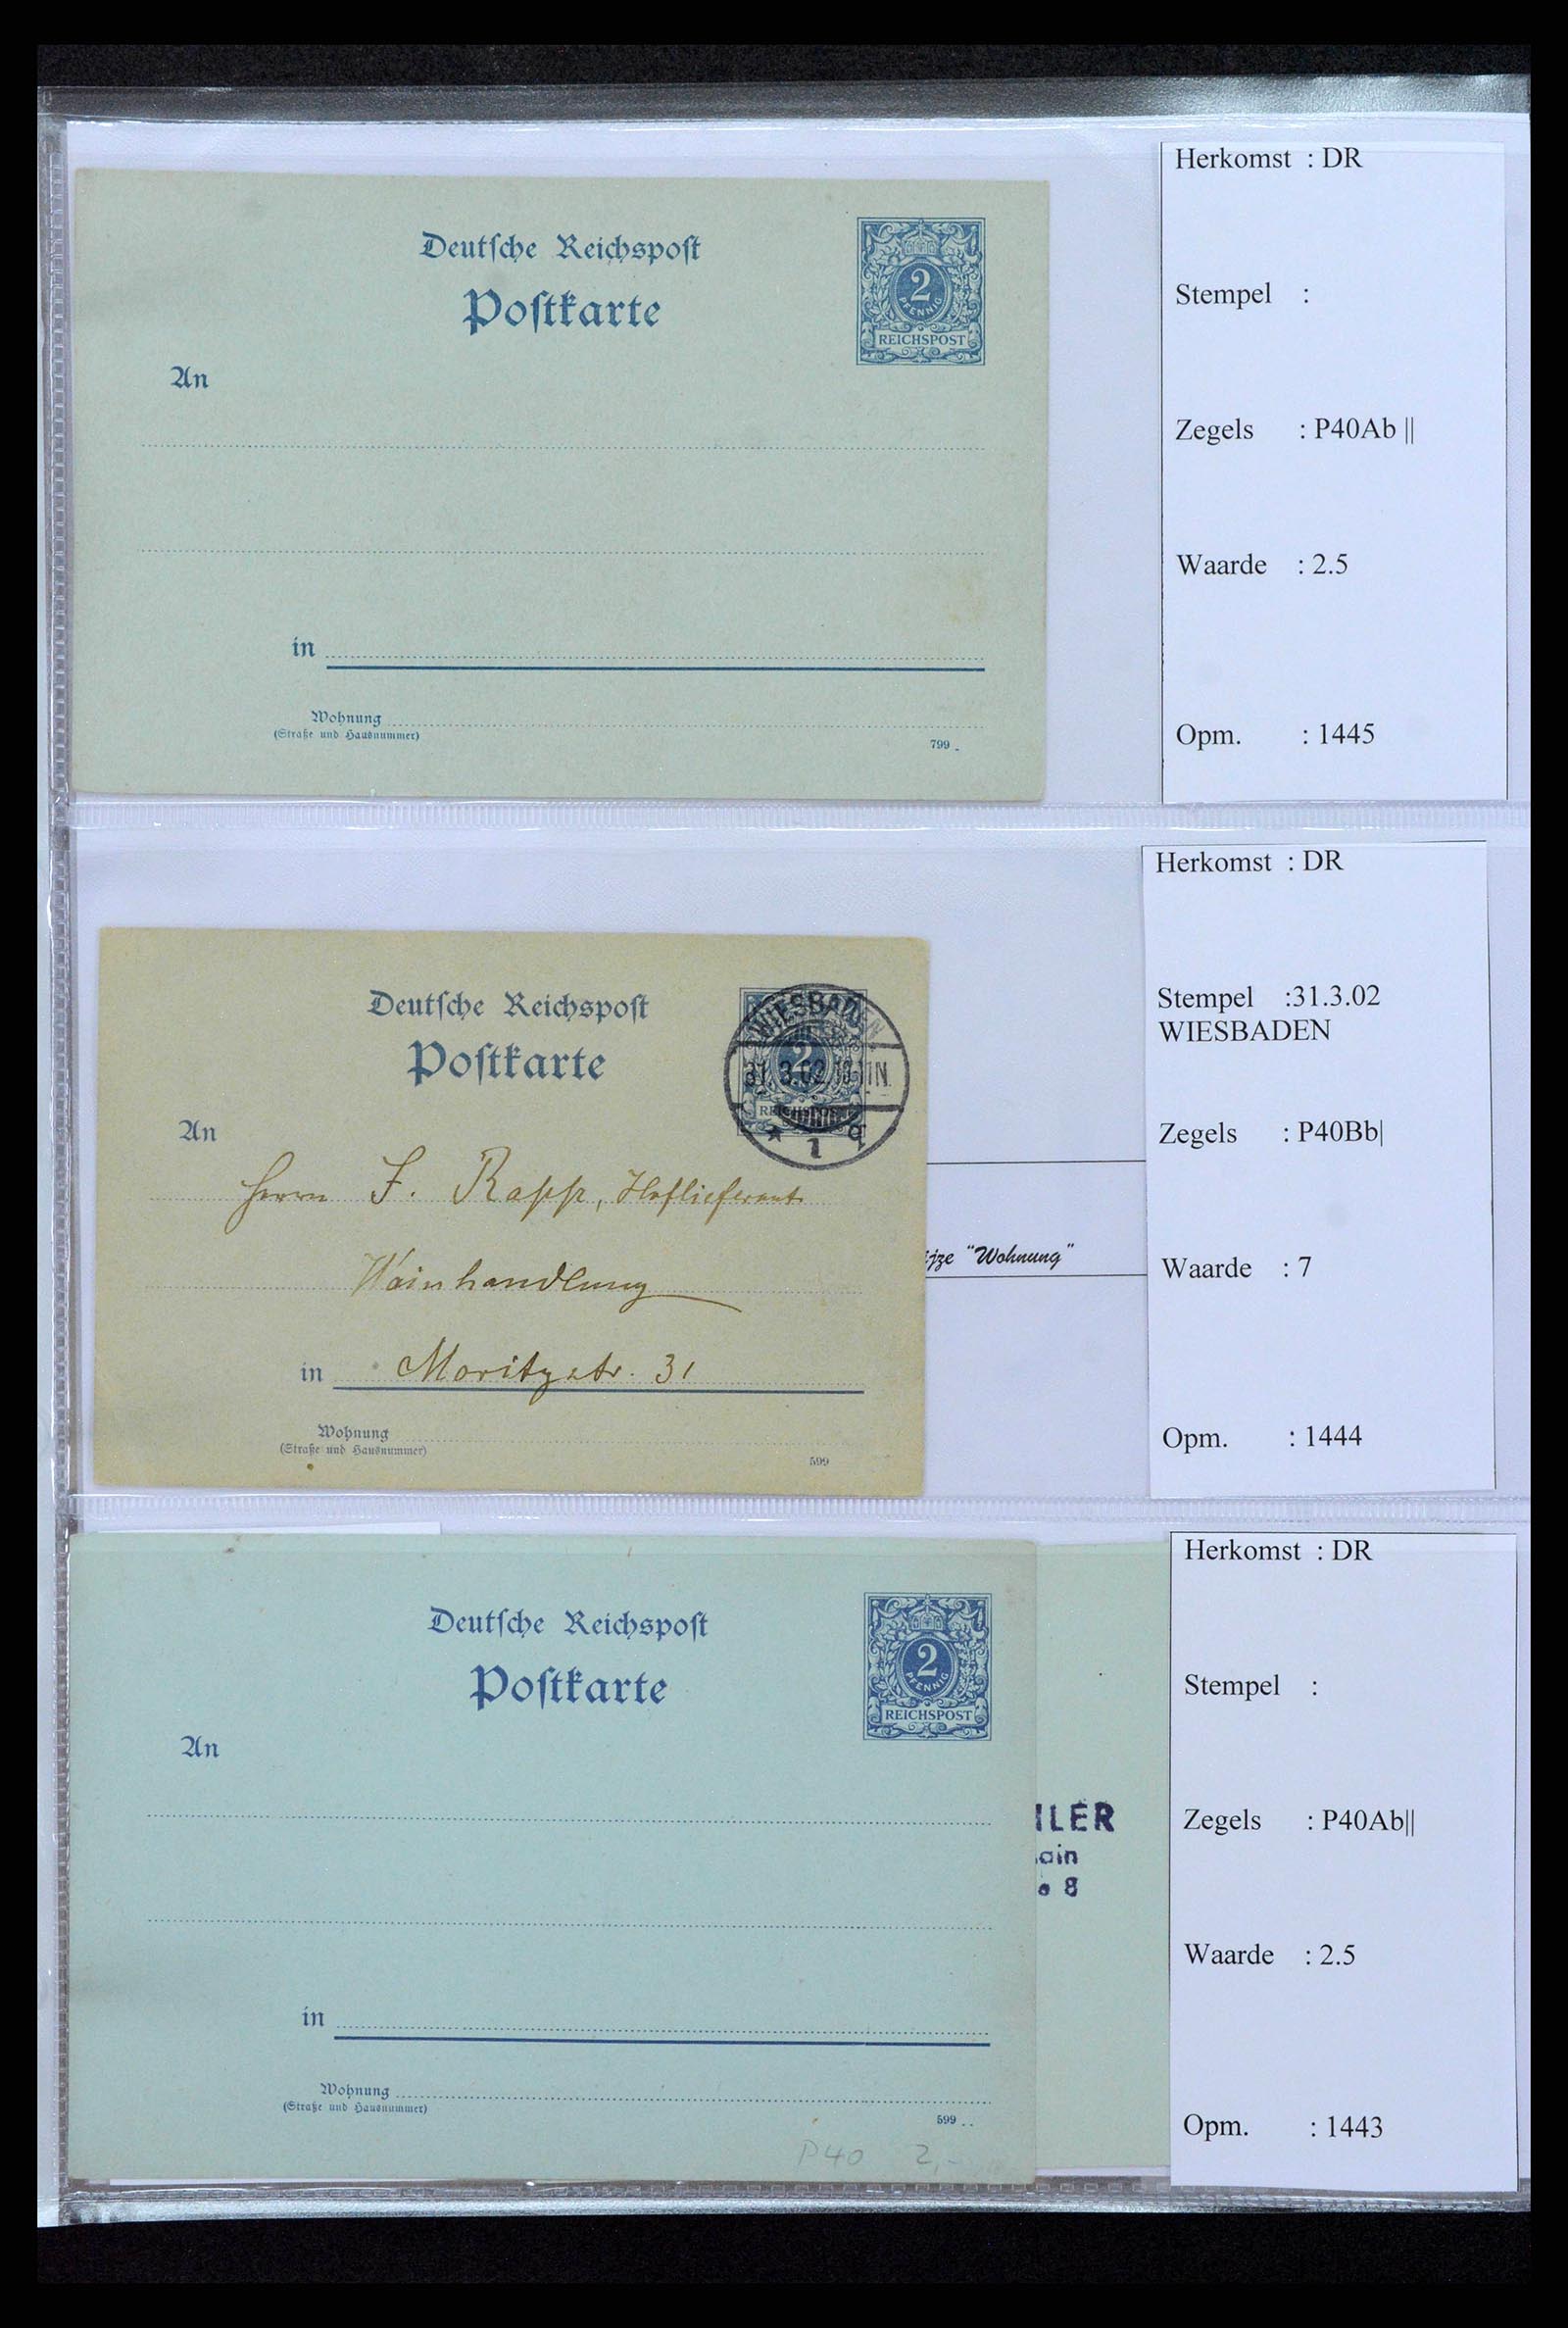 Deutsche Reichspost
Postkarte
2
PFENNIG
REICHSPOST
An
in
Wohnung
(Straße und Hausnummer)
799
Herkomst : DR
Stempel :
Zegels : P40Ab ||
Waarde : 2.5
Opm. : 1445
Deutsche Reichspost
Postkarte
2
REICHSPOST
WIESBADEN
31.3.02
1
An
Herrn F. Rapp, Hoflieferant
Weinhandlung
in Moritzstr. 31
Wohnung
(Straße und Hausnummer)
599
ijze "Wohnung"
Herkomst : DR
Stempel :31.3.02
WIESBADEN
Zegels : P40Bb|
Waarde : 7
Opm. : 1444
Deutsche Reichspost
Postkarte
2
PFENNIG
REICHSPOST
An
in
Wohnung
(Straße und Hausnummer)
599
P40 2,-
ILER
ain
8
Herkomst : DR
Stempel :
Zegels : P40Ab||
Waarde : 2.5
Opm. : 1443